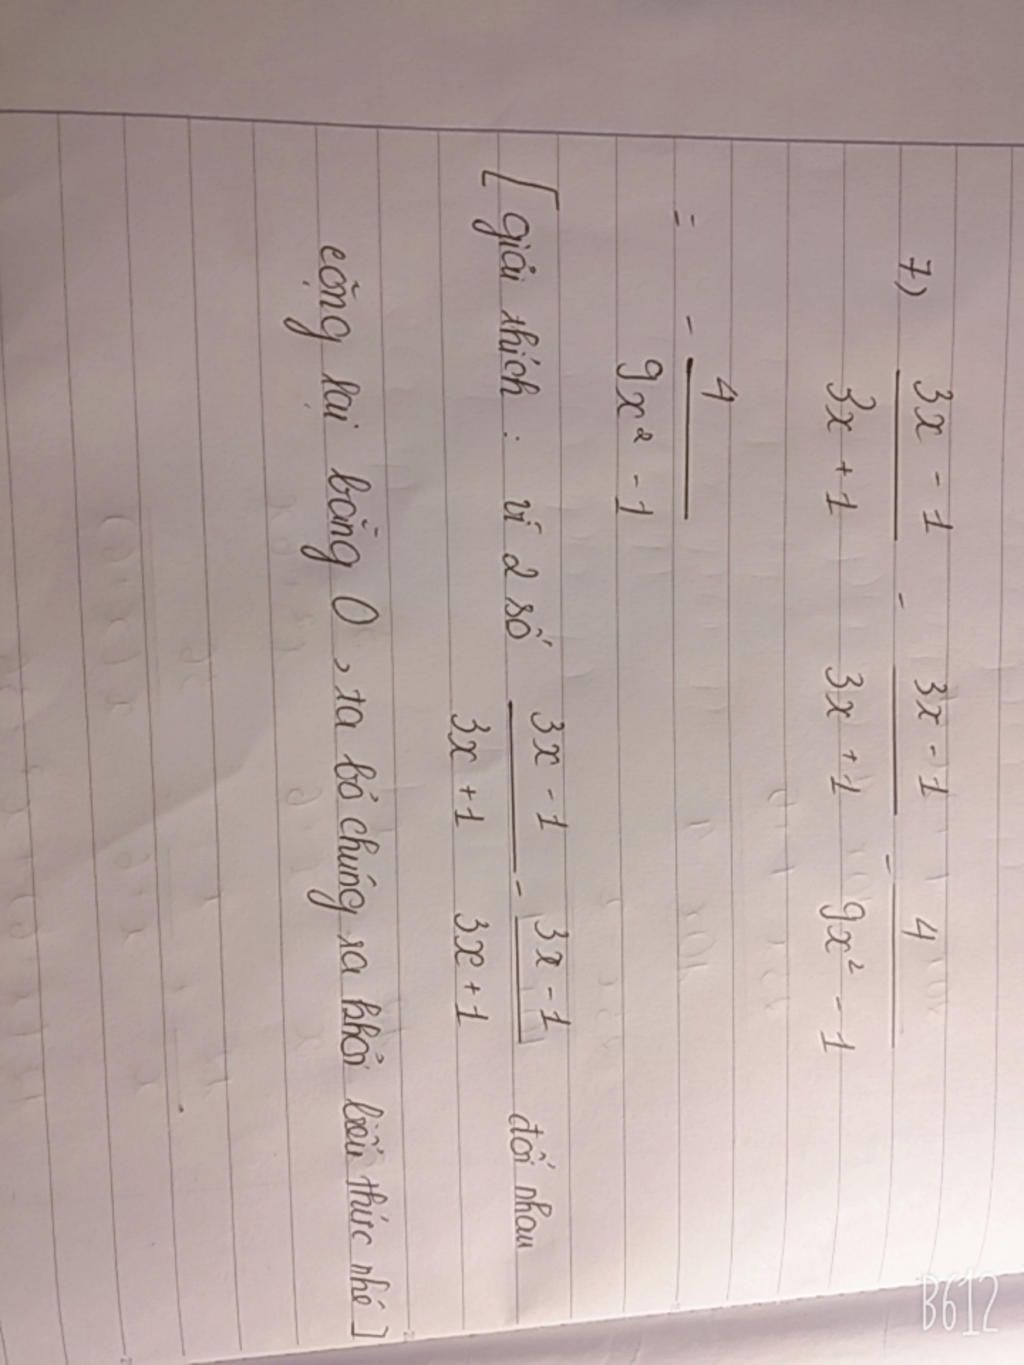 7) 3x - 1 / 3x + 1 - 3x - 1 / 3x + 1 - 4 / 9x² - 1
= - 4 / 9x² - 1
[giải thích : vì 2 số 3x - 1 / 3x + 1 - 3x - 1 / 3x + 1 đối nhau
cộng lại bằng 0, ta bỏ chúng ra khỏi biểu thức nhé]
B612